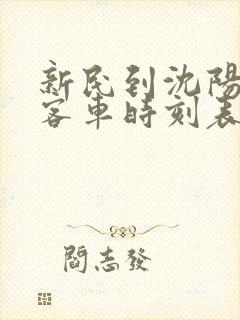 新民到沈陽
客車時刻表
閻志發